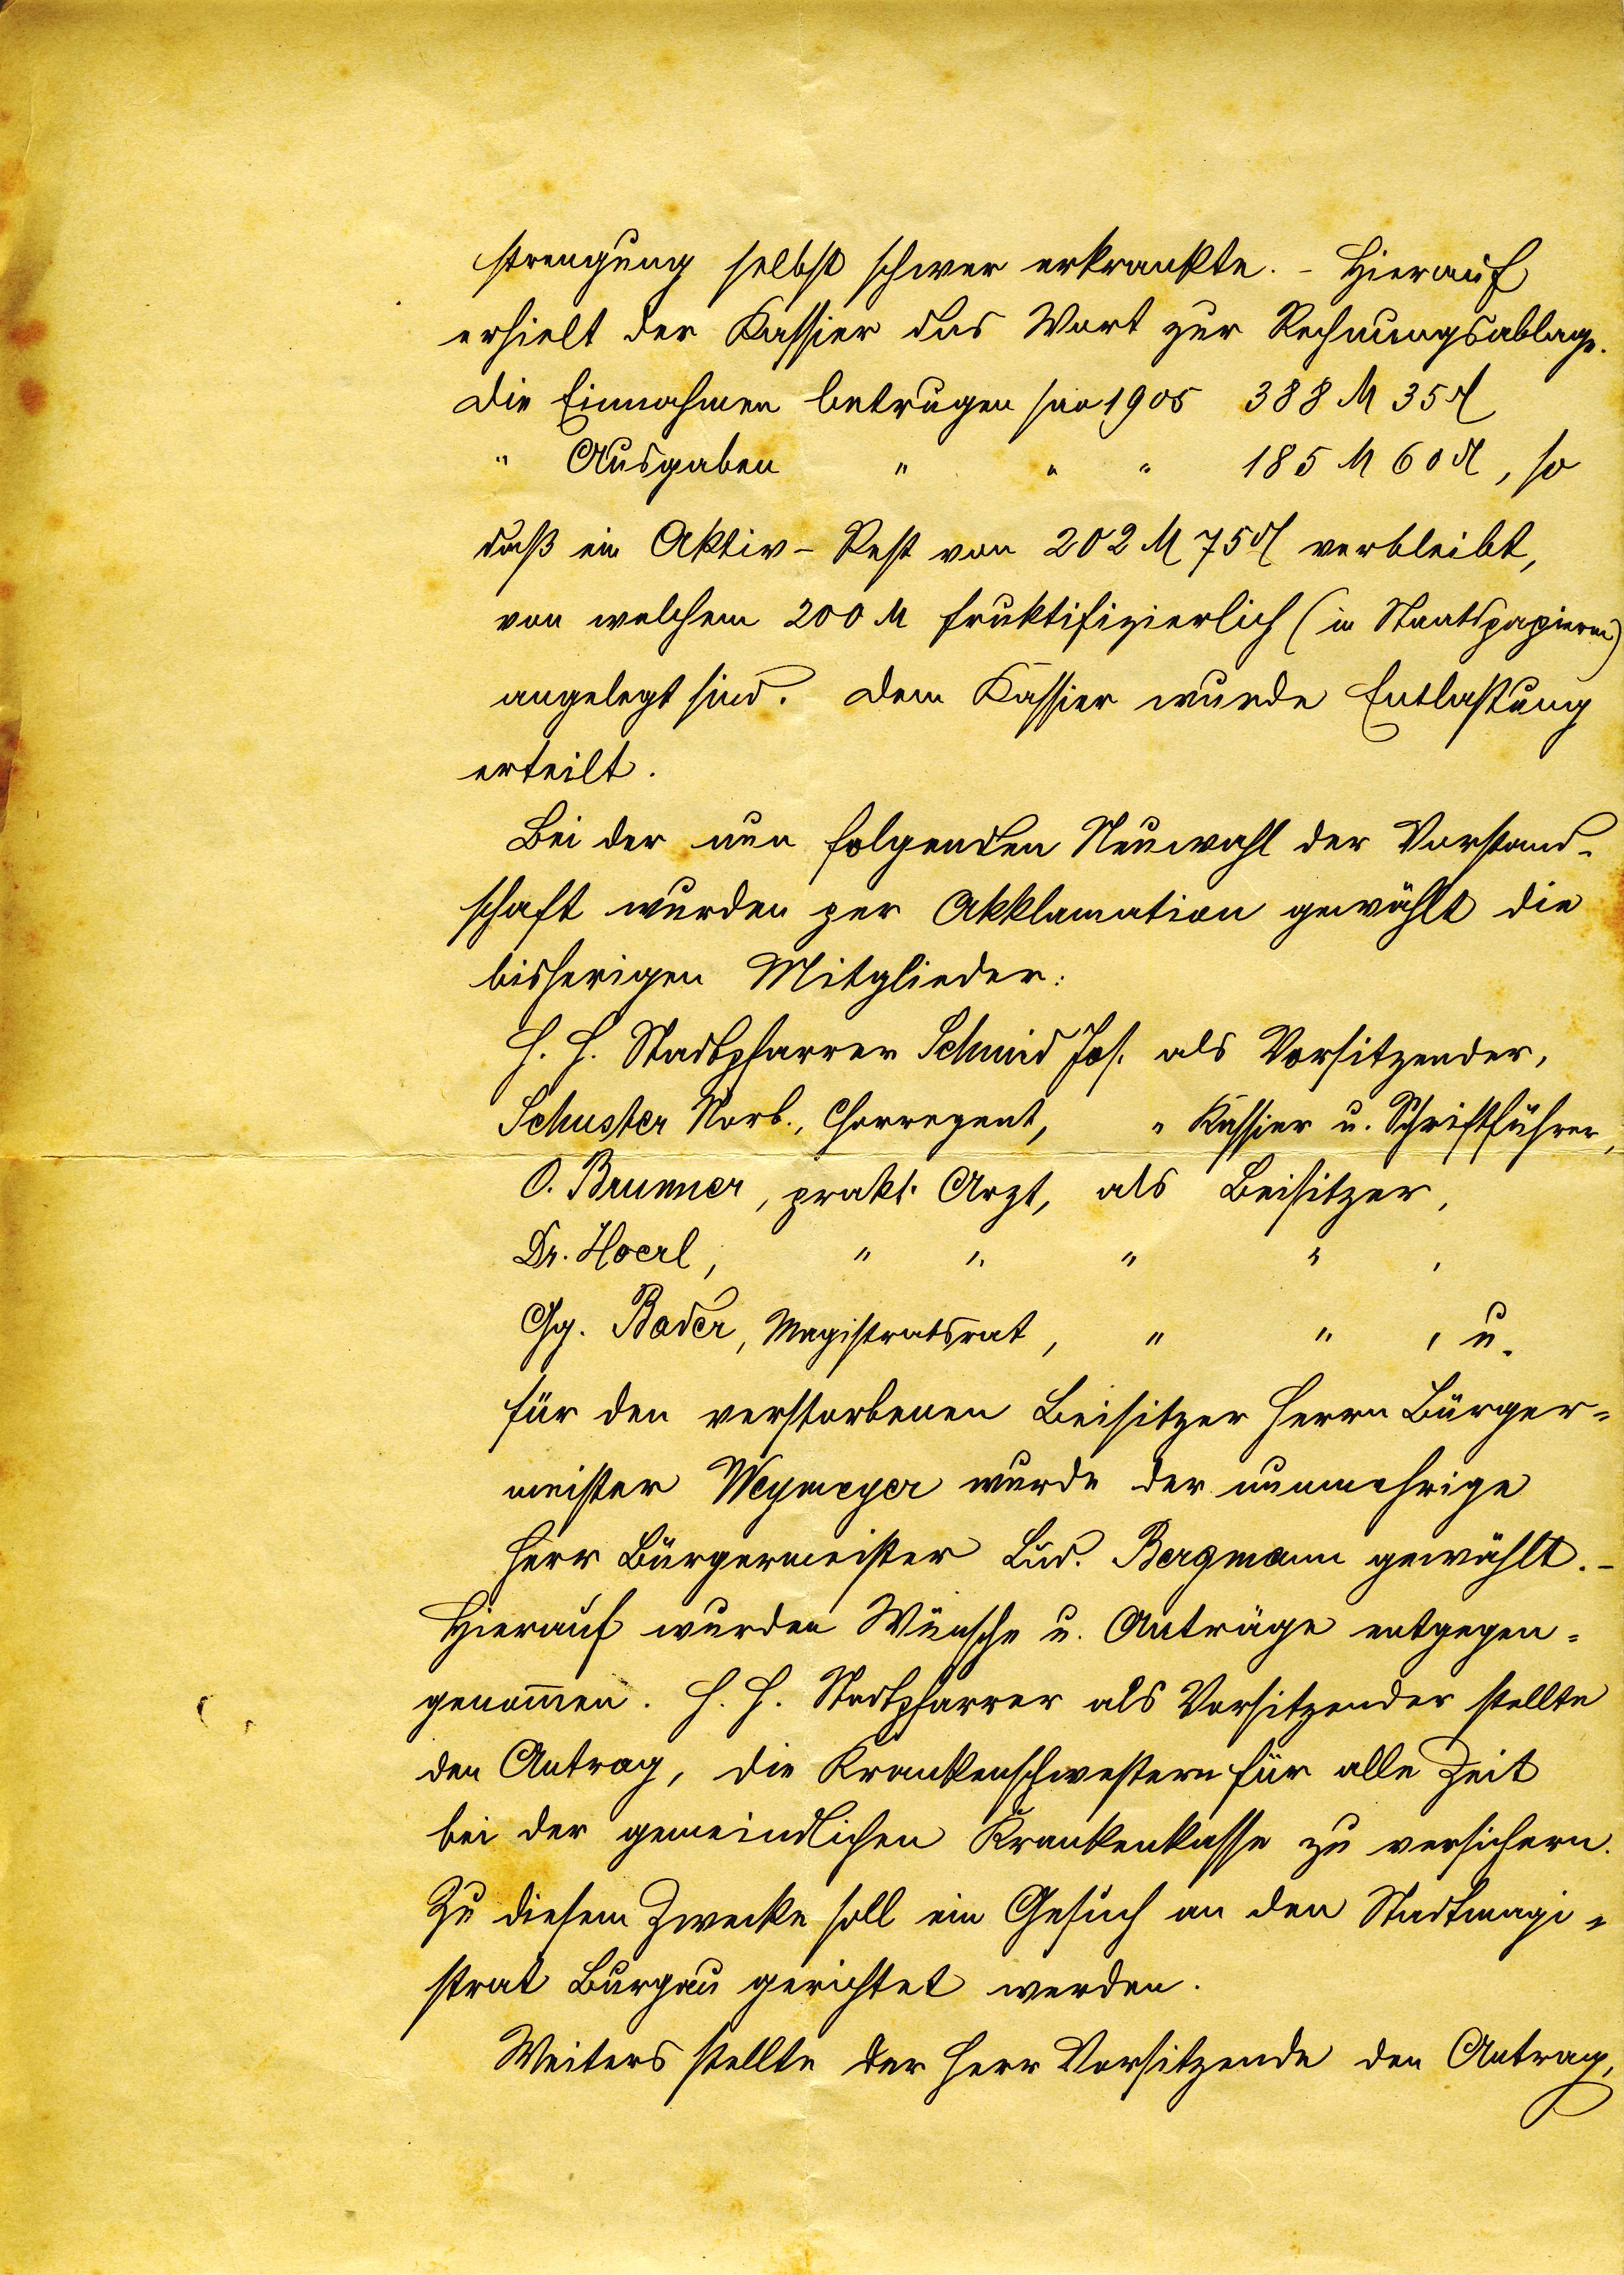 strengung selbst schwer erkrankte. – Hierauf
erhielt der Kassier das Wort zur Rechnungsablage.
Die Einnahmen betrugen pro 1905 388 M 35 ₰
" Ausgaben " " " 185 M 60 ₰, so
daß ein Aktiv-Rest von 202 M 75 ₰ verbleibt,
von welchem 200 M fruktifizierlich (in Staatspapieren)
angelegt sind. Dem Kassier wurde Entlastung
erteilt.
Bei der nun folgenden Neuwahl der Vorstand-
schaft wurden per Akklamation gewählt die
bisherigen Mitglieder:
H. H. Stadtpfarrer Schmid Jos. als Vorsitzender,
Schuster Norb., Chorregent, " Kassier u. Schriftführer,
O. Brunner, prakt. Arzt, als Beisitzer,
Dr. Hoerl, " " " " ,
Gg. Bader, Magistratsrat, " " , u.
für den verstorbenen Beisitzer Herrn Bürger-
meister Weymeyer wurde der nunmehrige
Herr Bürgermeister Lud. Bergmann gewählt. –
Hierauf wurden Wünsche u. Anträge entgegen-
genom̅en. H. H. Stadtpfarrer als Vorsitzender stellte
den Antrag, die Krankenschwestern für alle Zeit
bei der gemeindlichen Krankenkasse zu versichern.
Zu diesem Zwecke soll ein Gesuch an den Stadtmagi-
strat Burgau gerichtet werden.
Weiters stellte der Herr Vorsitzende den Antrag,